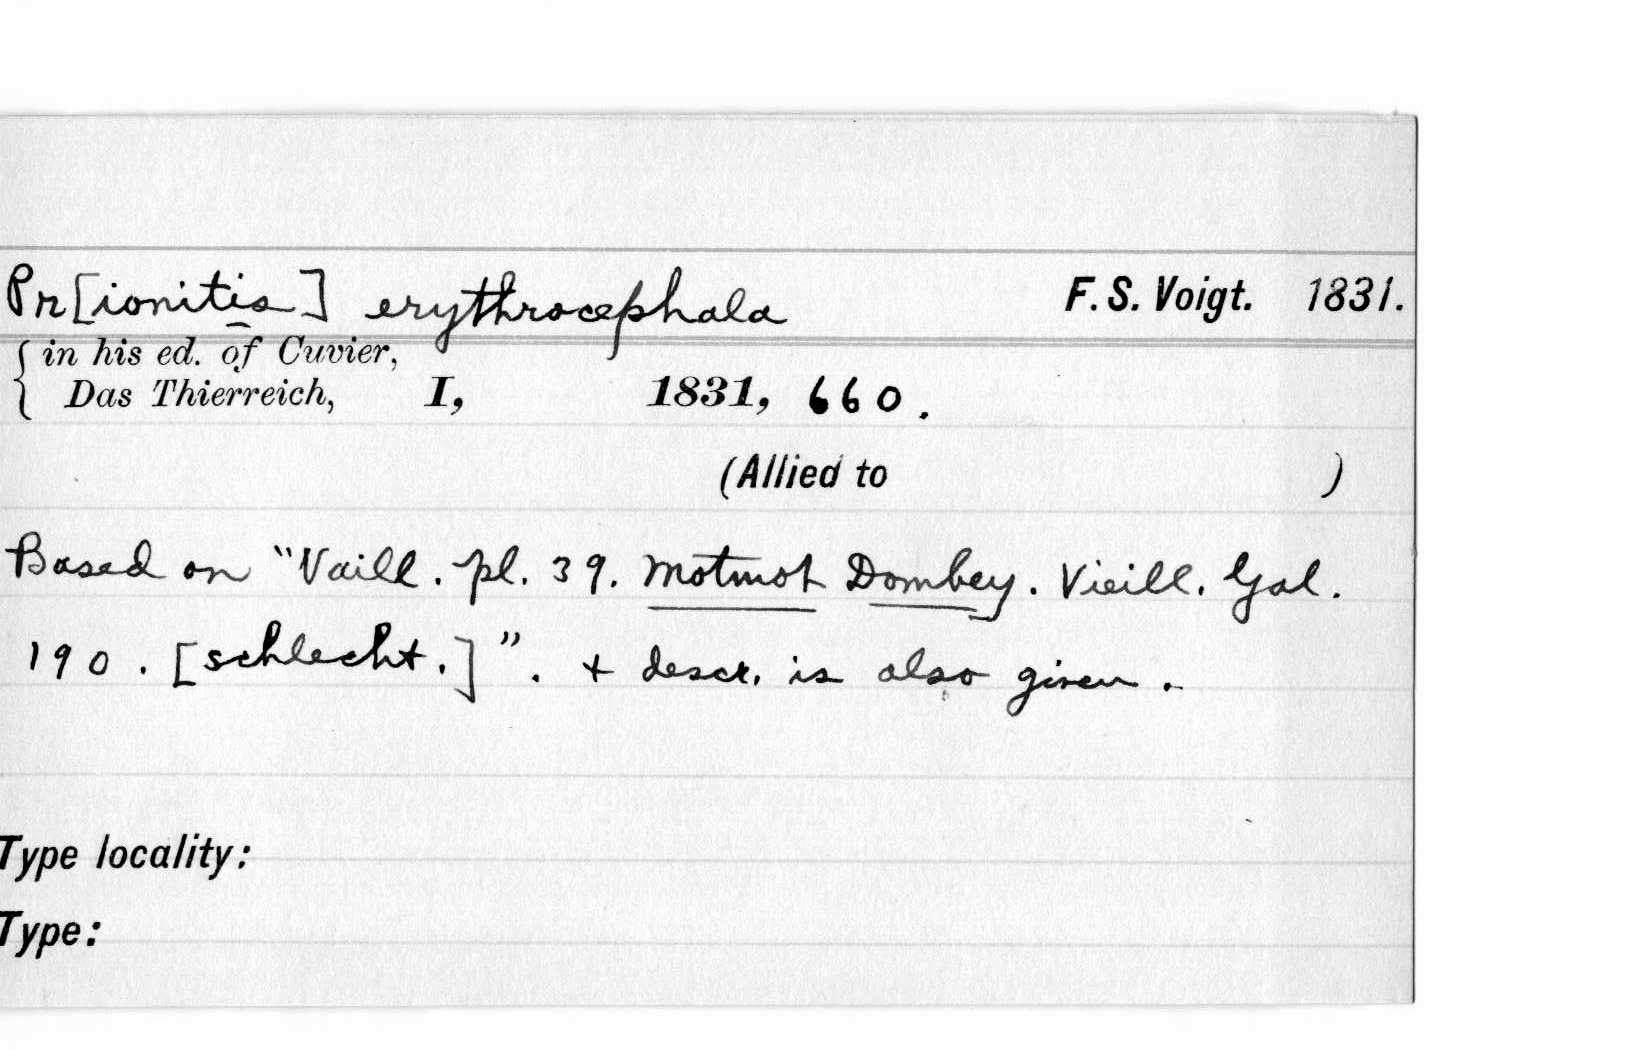 Pr[ionitis] erythrocephala F. S. Voigt. 1831.
{ in his ed. of Cuvier,
Das Thierreich, I, 1831, 660.
(Allied to )
Based on "Vaill. pl. 39. Motmot Dombey. Vieill. Gal.
190. [schlecht.]". + descr. is also given.
Type locality:
Type: